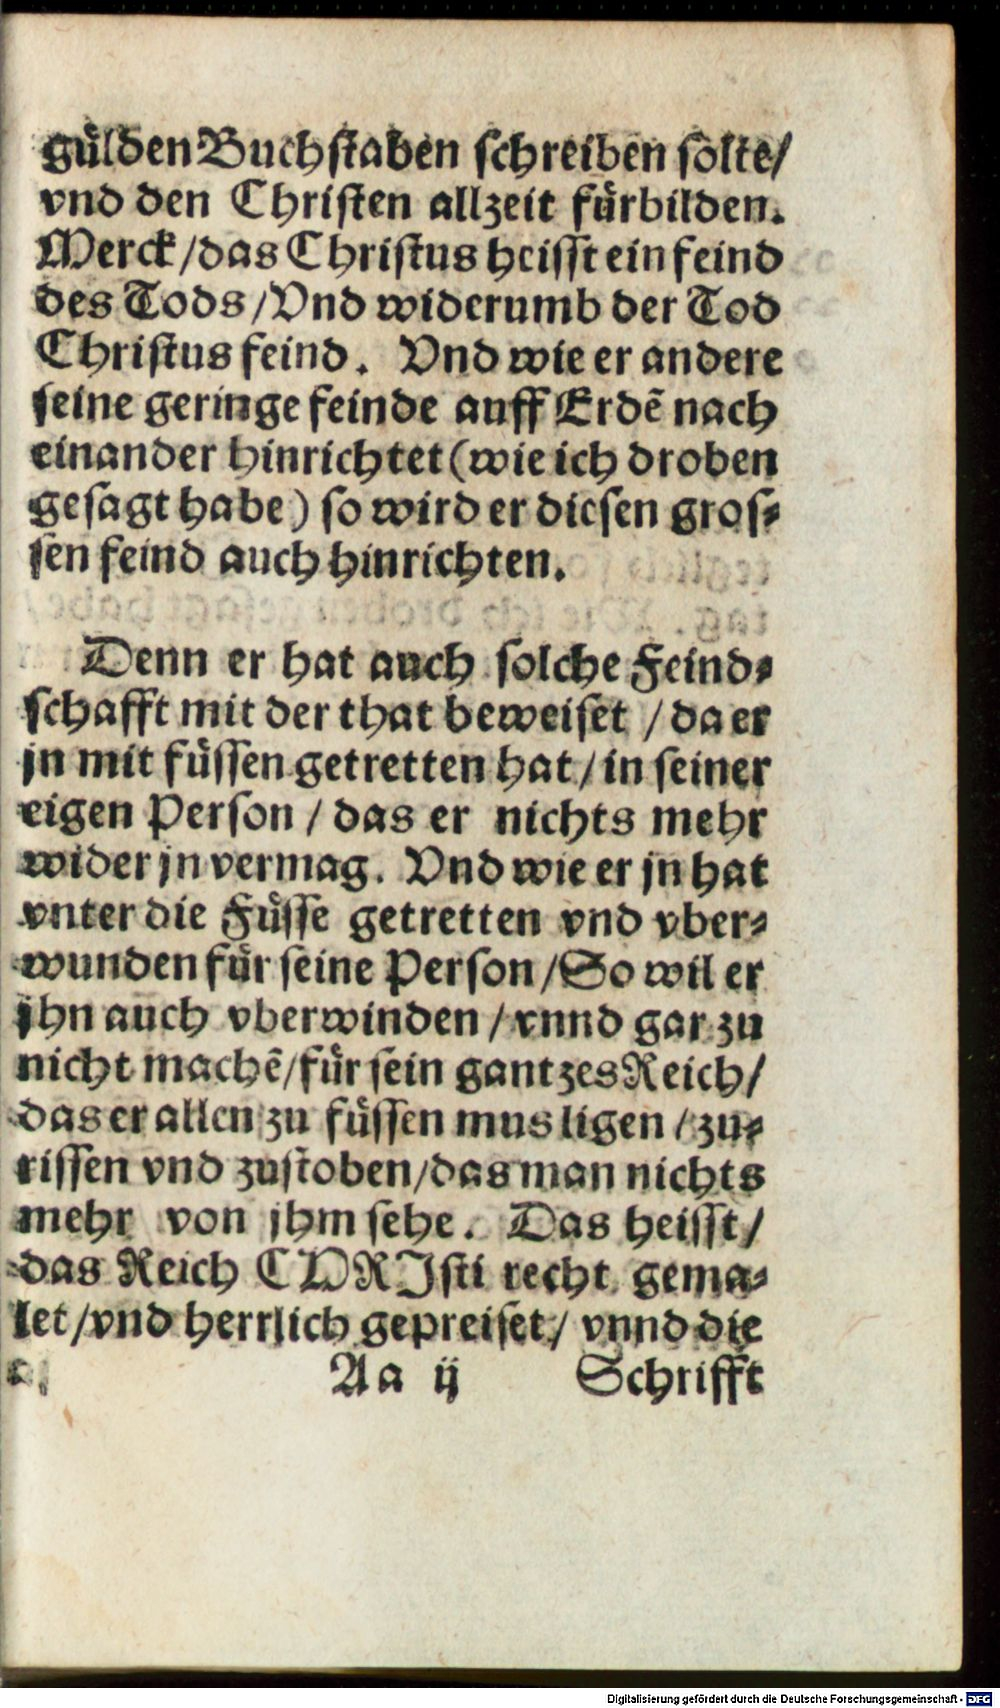 gülden Buchstaben schreiben solte/
vnd den Christen allzeit fürbilden.
Merck/das Christus heisst ein feind
des Tods/Vnd widerumb der Tod
Christus feind. Vnd wie er andere
seine geringe feinde auff Erdẽ nach
einander hinrichtet (wie ich droben
gesagt habe) so wird er diesen gros-
sen feind auch hinrichten.
Denn er hat auch solche Feind-
schafft mit der that beweiset / da er
jn mit füssen getretten hat/in seiner
eigen Person / das er nichts mehr
wider jn vermag. Vnd wie er jn hat
vnter die Füsse getretten vnd vber-
wunden für seine Person/So wil er
jhn auch vberwinden / vnnd gar zu
nicht machẽ/für sein gantzes Reich/
das er allen zu füssen mus ligen / zu-
rissen vnd zustoben/das man nichts
mehr von jhm sehe. Das heisst/
das Reich CHRJsti recht gema-
let/vnd herrlich gepreiset/ vnnd die
Aa ij Schrifft
Digitalisierung gefördert durch die Deutsche Forschungsgemeinschaft - DFG